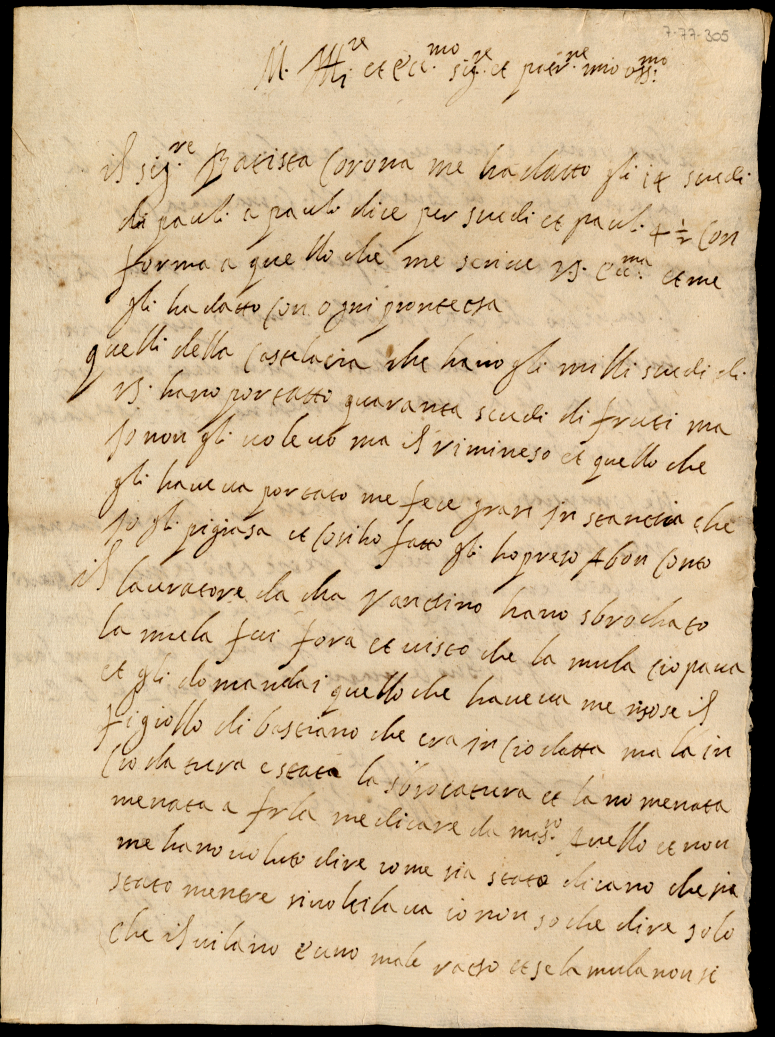 7-77-305
M. Ill.re et Ecc.mo sig.re et patr.ne mio oss.mo
il sig.re Batista Corona me ha datto gli 14 scudi
di pauli a pauli dice per scudi et paul. 4 1/2 Con
forma a quello che me scrive VS. Ecc.ma et me
gli ha datto con ogni prontecsa
quelli della Castelacia che hano gli milli scudi di
VS. hano portatto quaranta scudi di fruti ma
jo non gli volevo ma il rimineso et quello che
gli haveva portato me fece gran instantia che
jo gli pigiasa et cosi ho fatto gli ho preso A bon Conto
il lavratore da cha Vantino hano sbrochato
la mula fui fora et visto che la mula ciopava
et gli domandai quello che haveva me rispose il
figiollo di bastiano che era in Ciodatta ma la in
Ciodatura e stata la sbrocatura et la no menata
menata a frla medicare da mis.ro et non
me hano voluto dire come sia stato dicano che sia
stato mentre rivoltilava io non so che dire solo
che il vilano e uno male et se la mula non si